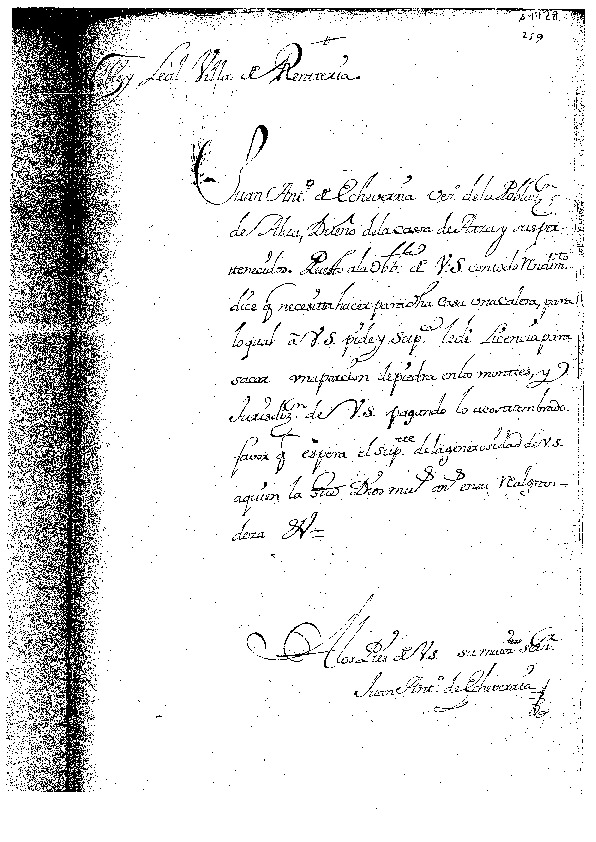 259
Leal Villa de Renteria.
Juan Antº de Echeverria Veº de la Poblaon
de Alza, Dueño de la casa de Arzu y sus per-
tenecidos. Puesto ala Obbª de V.S con todo Rendimto
dice q necesita hacer para dha Casa una calera, para
lo qual à V.S. pide y Supca le dè Licencia para
sacar una porcion de piedra en los montes, y
Jurisdizn de V.S. pagando lo acostumbrado.
favor q espera el Supte de la generosidad de V.S.
aquien la Dios mus ans en su Rl gran-
deza
A los Pies de V.S. su
Juan Antº de Echeverria